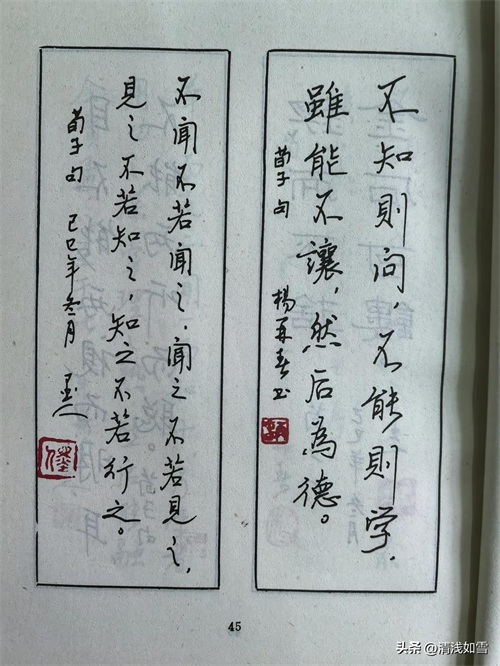 不知則问，不能則学，
雖能不讓，然后為德。
荀子句 楊再春书
不闻不若闻之，闻之不若見之，
見之不若知之，知之不若行之。
荀子句 己巳年冬月
45
头条 @清浅如雪